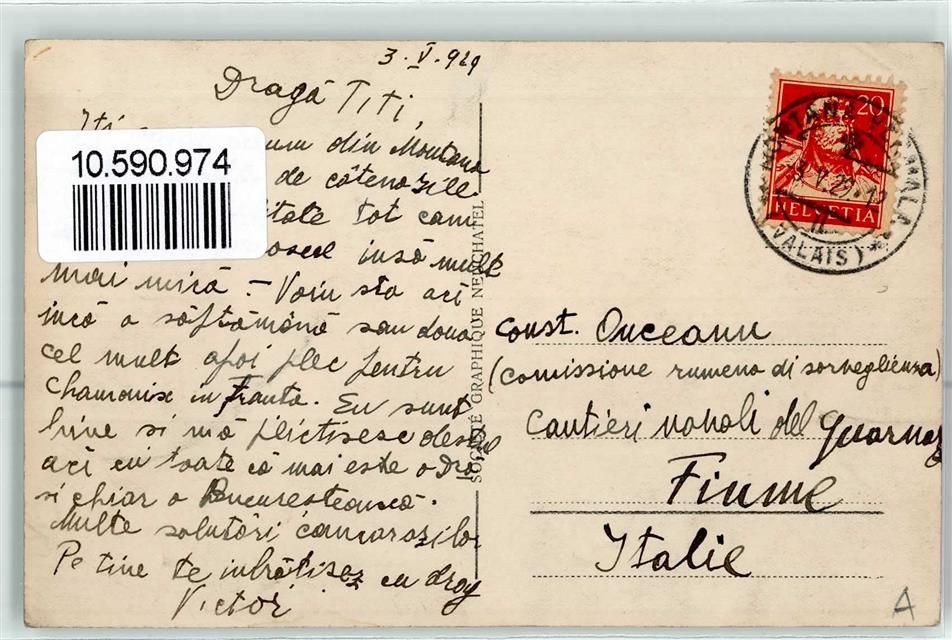 3. V. 929
Dragă Titi,
Iți
din Montana
de câteva zile
tot cam
însă mult
mai mică - Voiu sta aci
încă o săptămână sau doua
cel mult apoi plec pentru
Chamonix in Franta. Eu sunt
bine si mă plictisesc destul
aci cu toate că mai este o
si chiar o Bucuresteancă.
Multe salutări camarazilor
Pe tine te imbrătisez cu drag
Victor
10.590.974
SOCIÉTÉ GRAPHIQUE NEUCHATEL
20
HELVETIA
MONTANA-VERMALA
(VALAIS)
Const. Onceanu
(Comissione rumeno di sorveglienza)
Cantieri navali del Quarnaro
Fiume
Italie
A